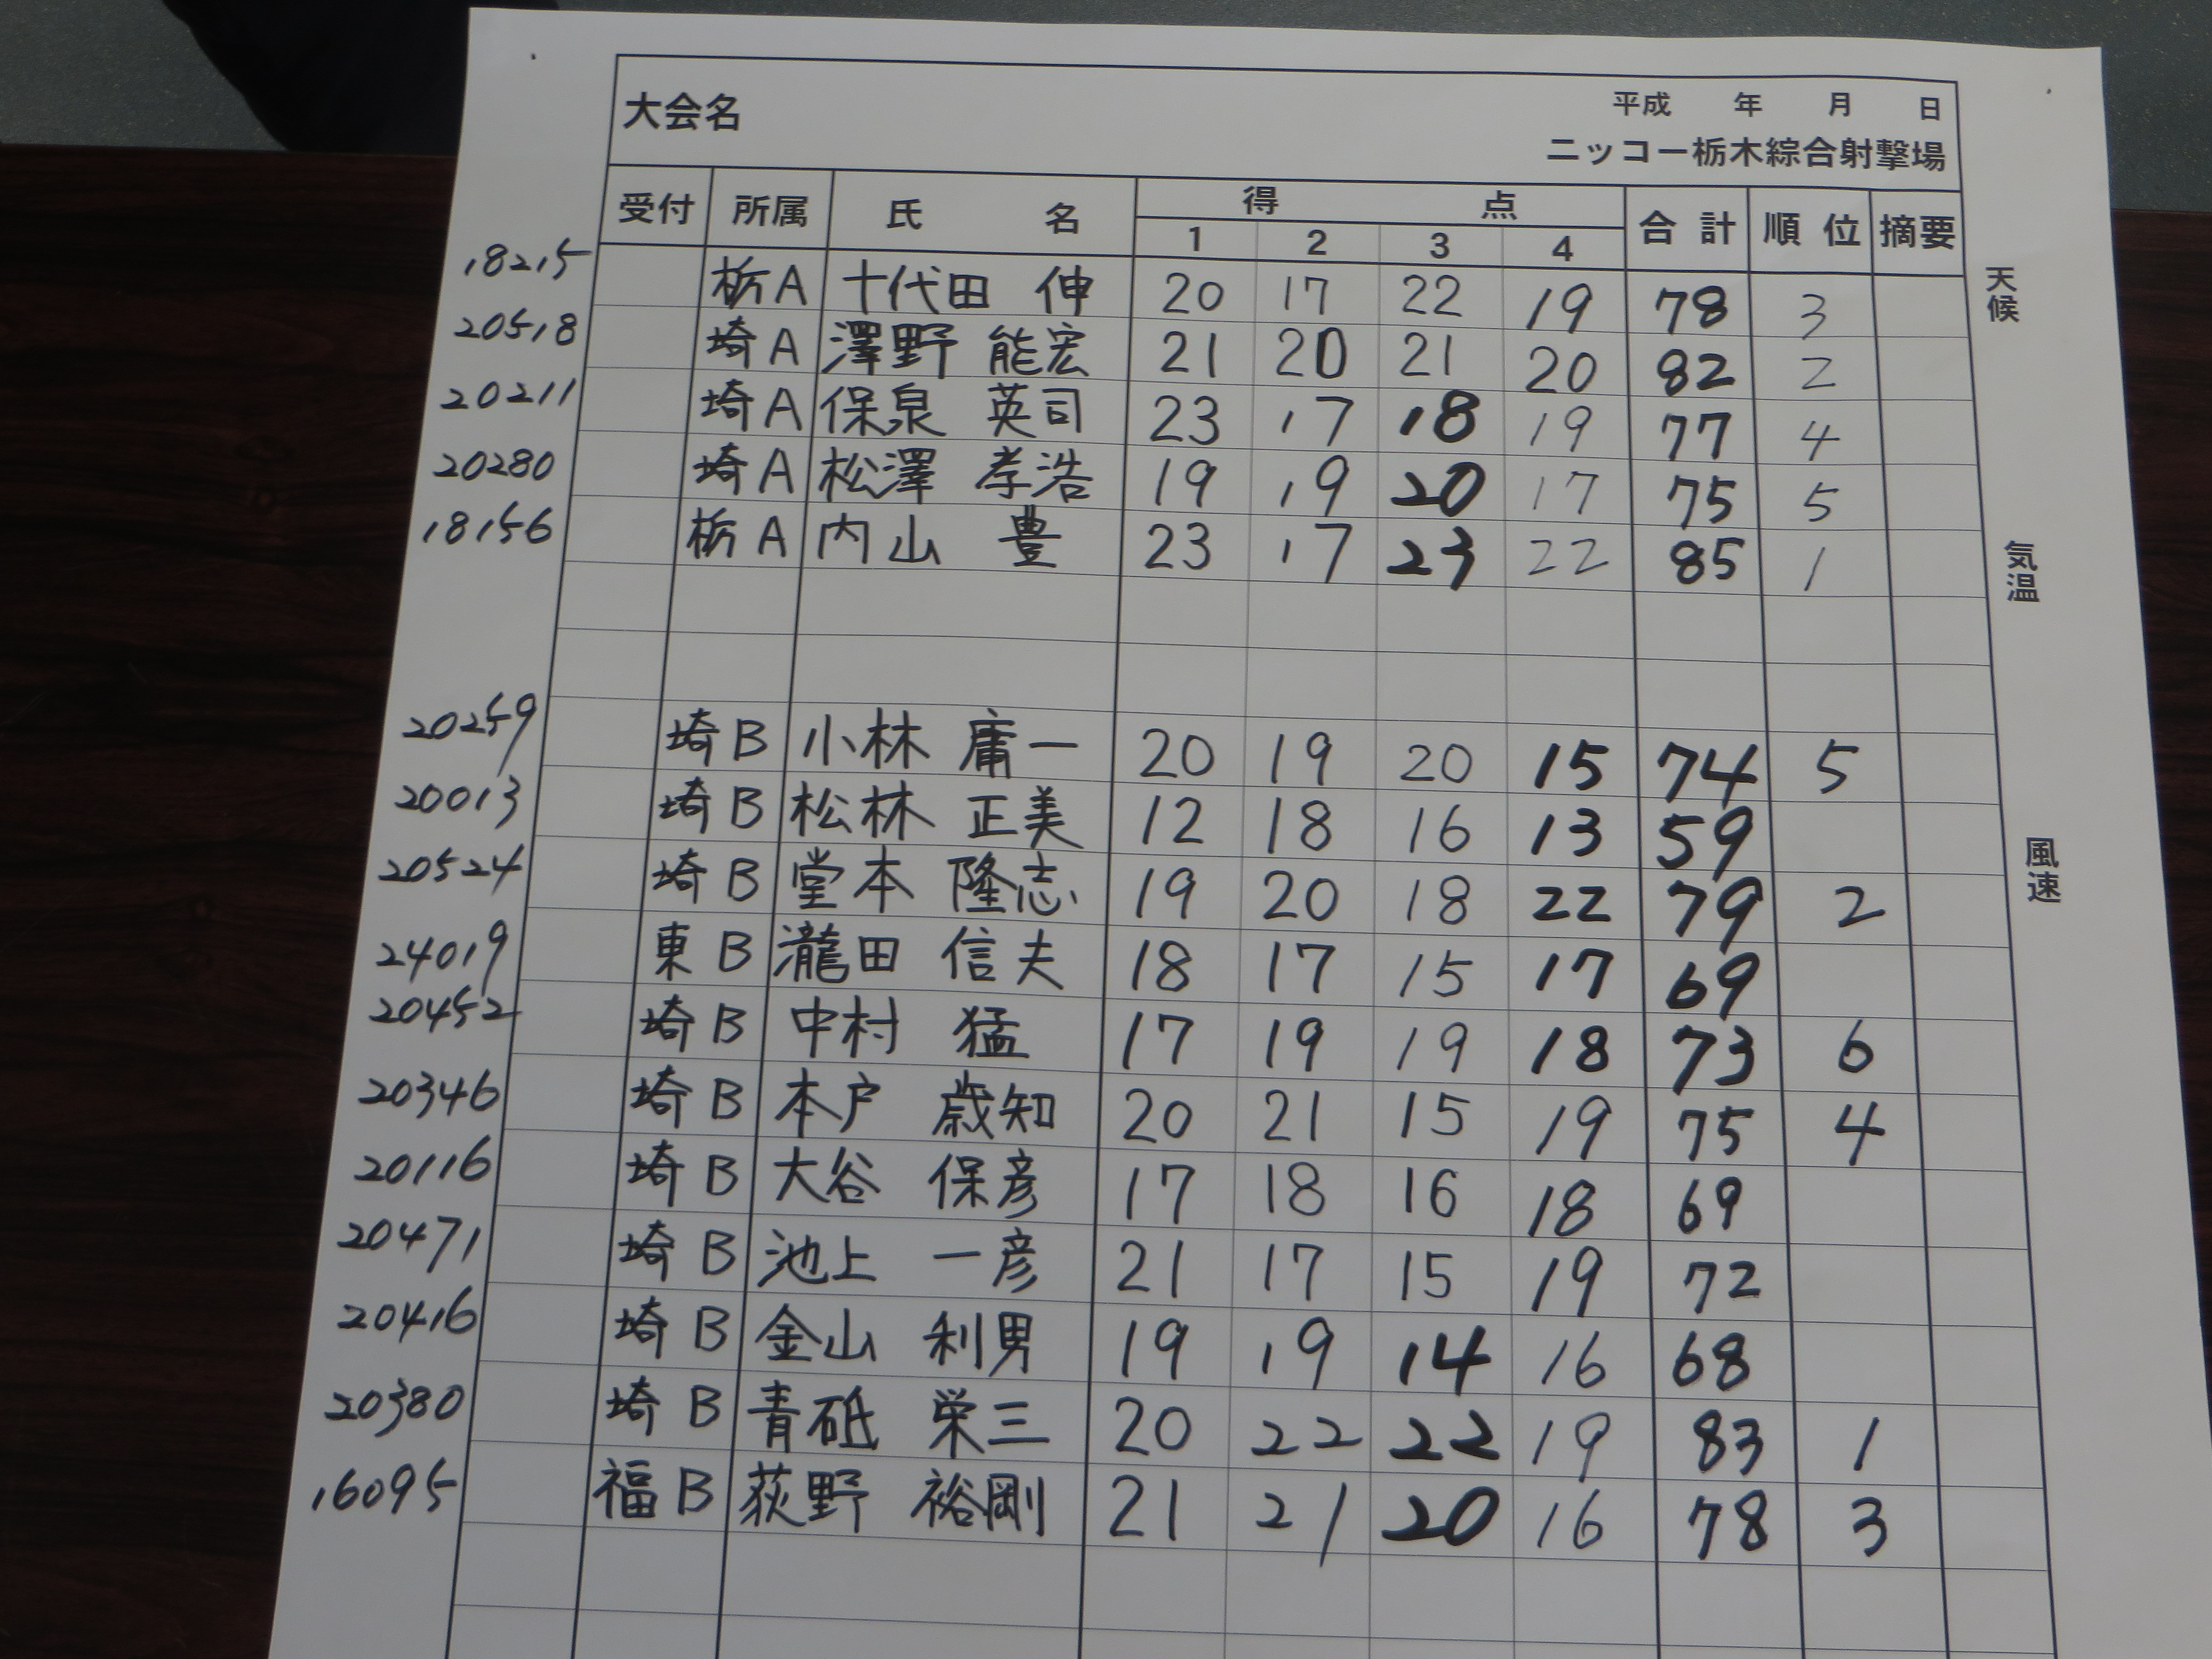 大会名 平成 年 月 日
ニッコー栃木綜合射撃場
受付 所属 氏 名 得 点 合計 順位 摘要
1 2 3 4
18215 栃A 十代田 伸 20 17 22 19 78 3
20518 埼A 澤野 能宏 21 20 21 20 82 2
20211 埼A 保泉 英司 23 17 18 19 77 4
20280 埼A 松澤 孝浩 19 19 20 17 75 5
18156 栃A 内山 豊 23 17 23 22 85 1
20259 埼B 小林 庸一 20 19 20 15 74 5
20013 埼B 松林 正美 12 18 16 13 59
20524 埼B 堂本 隆志 19 20 18 22 79 2
24019 東B 瀧田 信夫 18 17 15 17 69
20452 埼B 中村 猛 17 19 19 18 73 6
20346 埼B 本戸 歳知 20 21 15 19 75 4
20116 埼B 大谷 保彦 17 18 16 18 69
20471 埼B 池上 一彦 21 17 15 19 72
20416 埼B 金山 利男 19 19 14 16 68
20380 埼B 青砥 栄三 20 22 22 19 83 1
16095 福B 荻野 裕剛 21 21 20 16 78 3
天候
気温
風速